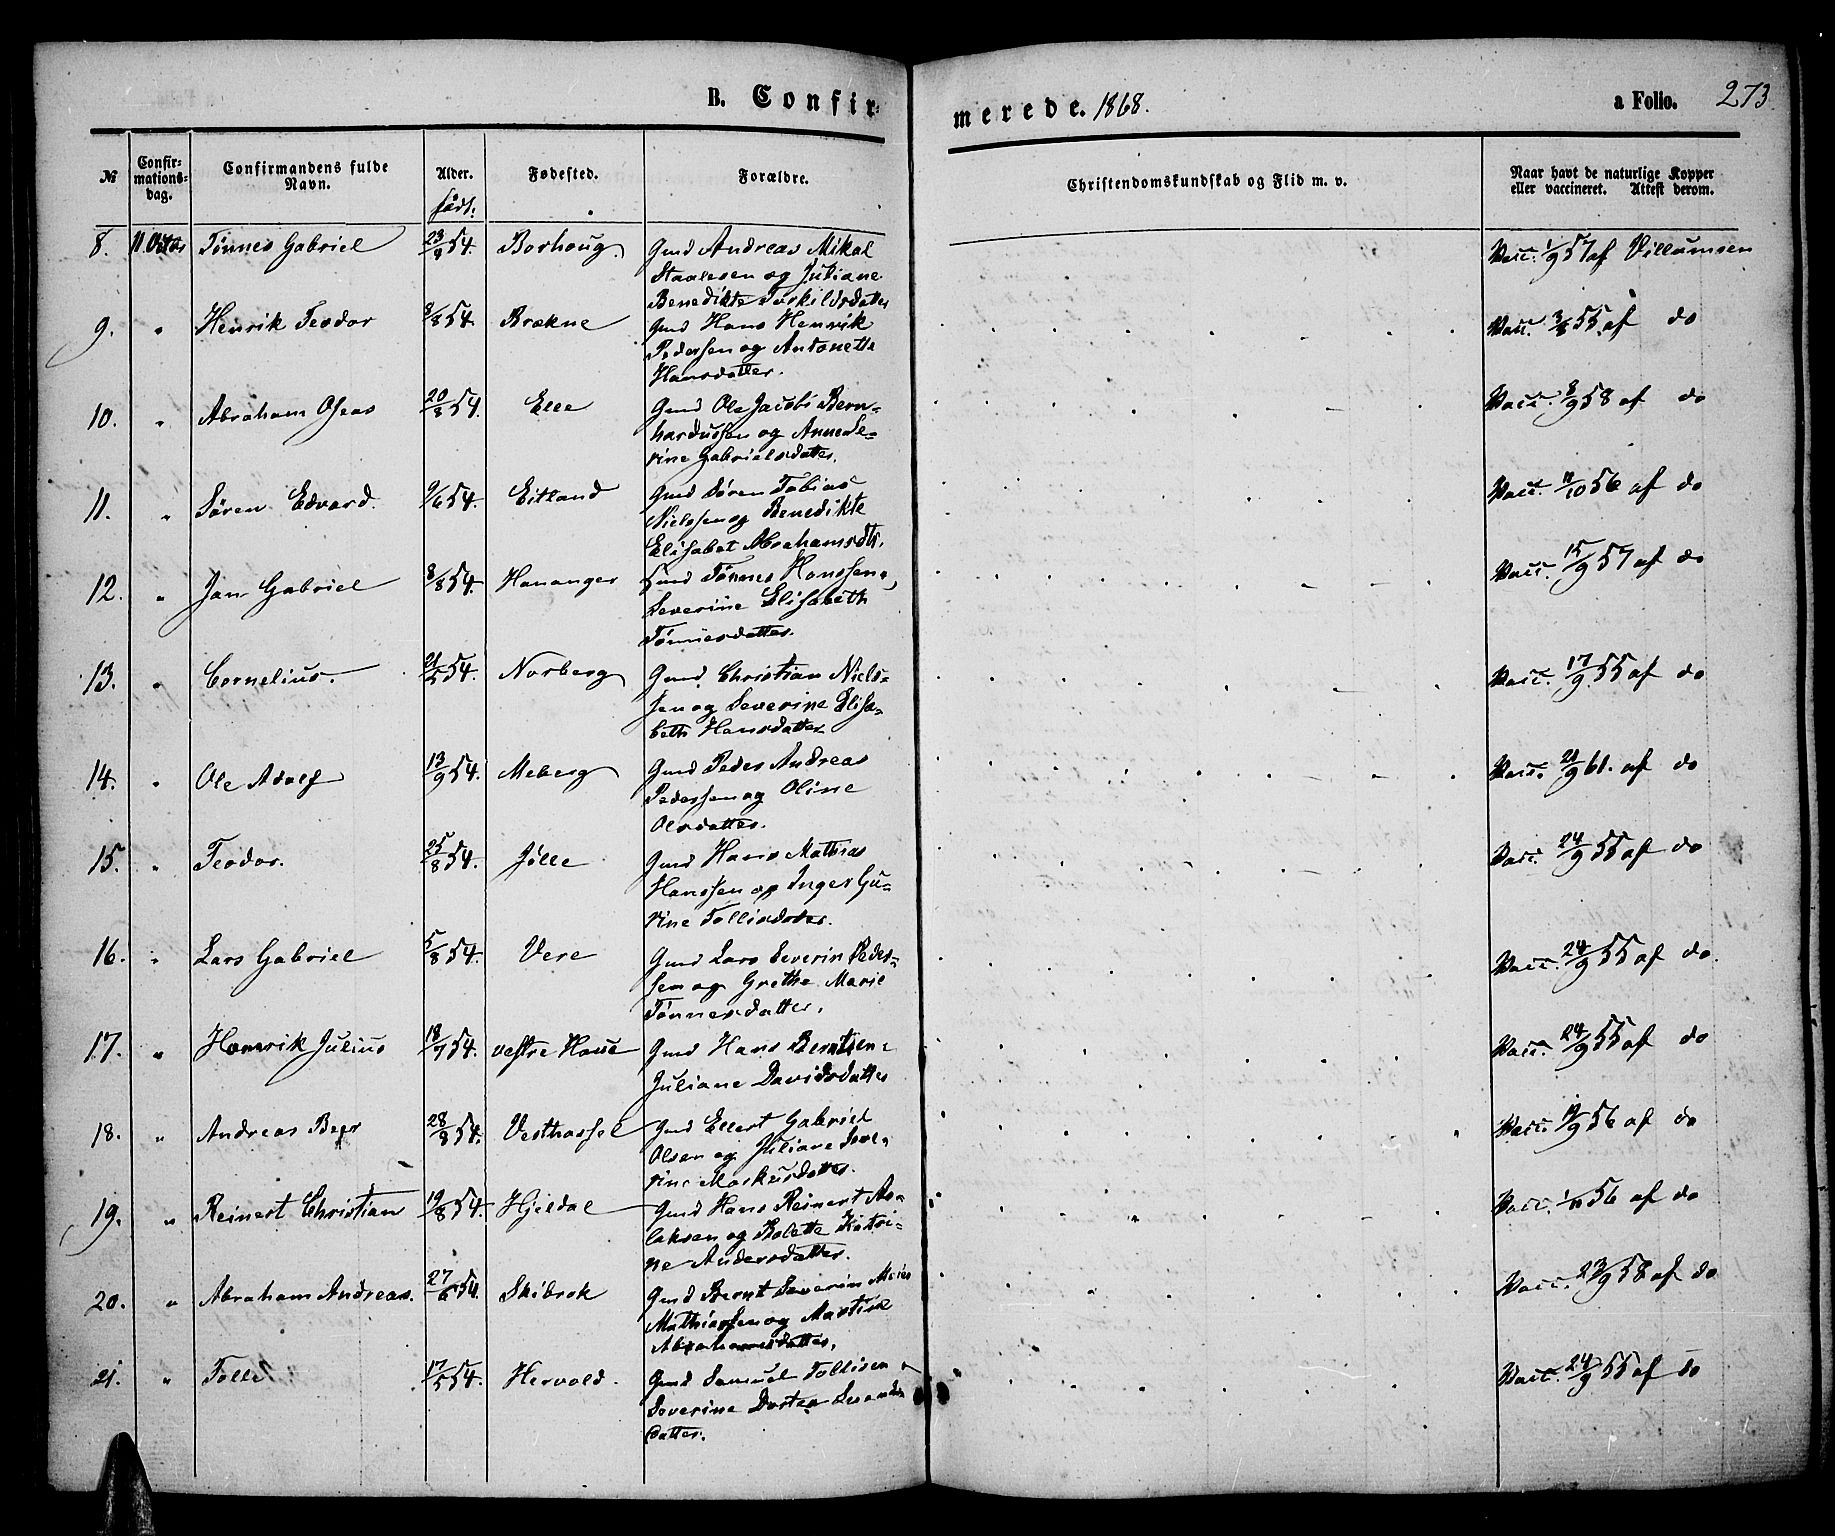 B. Confir-
merede. 1868.
a Folio. 273.
№
Confir-
mations-
dag.
Confirmandens fulde
Navn.
Alder.
født.
Fødested.
Forældre.
Christendomskundskab og Flid m. v.
Naar havt de naturlige Kopper
eller vaccineret. Attest derom.
8. Tønnes Gabriel 23/9 54. Borhoug Gmd Andreas Mikal
Staalesen og Juliane
Benedikte Torkildsdatter
Vacc. 1/9 57 af Villumsen
9. " Henrik Teodor 8/8 54. Brækne Gmd Hans Henrik
Pedersen og Antonette
Hansdatter.
Vacc. 3/8 55. af do
10. " Abraham Oseas 20/8 54. Elle Gmd Ole Jacobi Bern-
hardussen og Anne Se-
rine Gabrielsdatter.
Vacc. 8/9 58 af do
11. " Søren Edvard. 9/6 54. Eitland Gmd Søren Tobias
Nielssen og Benedikte
Elisabet Abrahamsdtr.
Vacc. 11/10 56 af do
12. " Jan Gabriel 8/8 54. Hananger Gmd Tønnes Hanssen,
Severine Elisabeth
Tønnesdatter.
Vacc. 15/9 57 af do
13. " Cornelius. 21/5 54. Norberg Gmd. Christian Niels-
sen og Severine Elisa-
beth Hansdatter
Vacc. 17/9 55 af do
14. " Ole Adolf 13/9 54. Meberg Gmd Peder Andreas
Pederssen og Oline
Olsdatter.
Vacc. 21/9 61. af do
15. " Teodor. 25/8 54. Jølle Gmd Hans Mathias
Hanssen og Inger Gu-
rine Tollisdatter.
Vacc. 24/9 55 af do
16. " Lars Gabriel 5/8 54. Vere Gmd Lars Severin Peder-
sen og Grethe Marie
Tønnesdatter.
Vacc. 24/9 55 af do.
17. " Henrik Julius 18/7 54. vestre Haue Gmd Hans Berntsen
Juliane Davidsdatter
Vacc. 24/9 55 af do
18. " Andreas Beer 28/8 54. Vesthassel Gmd Ellert Gabriel
Olsen og Juliane Seve-
rine Markusdatter.
Vacc. 19/9 56 af do
19. " Reinert Christian 19/8 54. Hjeldal Gmd Hans Reinert As-
laksen og Bolette Katri-
ne Andersdatter.
Vacc. 1/10 56 af do
20. " Abraham Andreas. 27/6 54. Skibrok Gmd Bernt Severin
Mathiassen og Martine
Abrahamsdatter.
Vacc. 23/9 58 af do
21. " Tolle 17/5 54. Hervold. Gmd Samuel Tollisen
Severine Dortea
datter.
Vacc. 24/9 55 af do